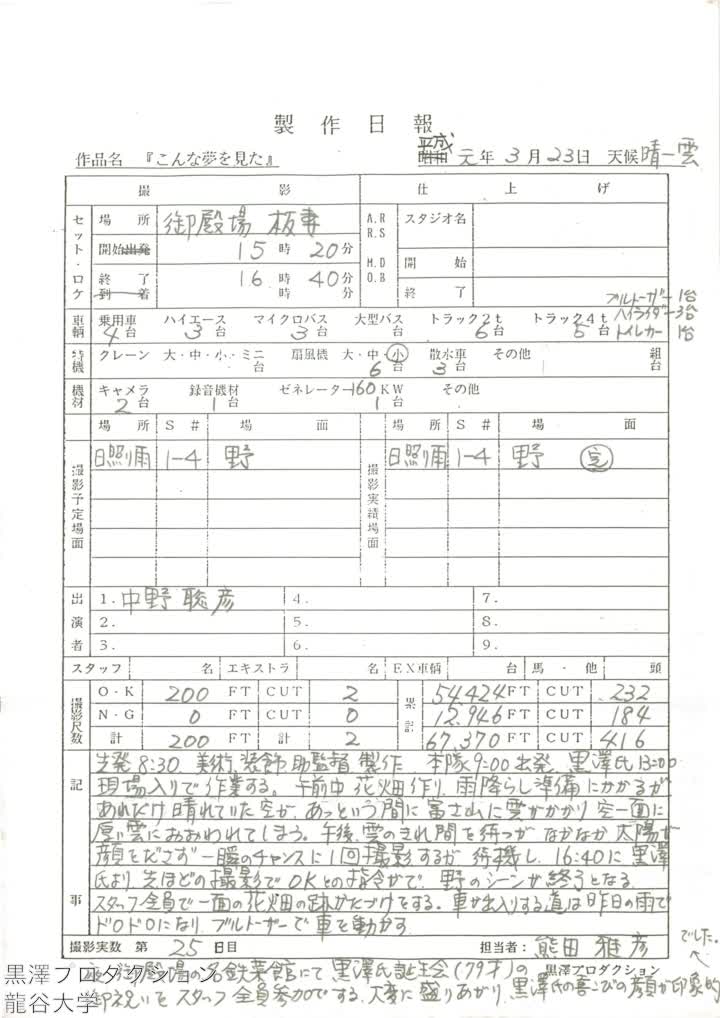 製作日報
作品名 『こんな夢を見た』 平成 昭和 元年 3月 23日 天候 晴一雲
撮影 仕上げ
セット・ロケ 場所 御殿場 板妻 A.R R.S スタジオ名
開始 出発 15時 20分 M.D D.B 開始
終了 到着 16時 40分 終了
時 分
ブルトーザー 1台
ハイライダー 3台
トイレカー 1台
車輌 乗用車 4台 ハイエース 3台 マイクロバス 3台 大型バス 台 トラック2t 6台 トラック4t 5台
特機 クレーン 大・中・小・ミニ 台 扇風機 大・中・小 6台 散水車 3台 その他 組 台
機材 キャメラ 2台 録音機材 1台 ゼネレーター 160KW 1台 その他
場所 S# 場面 場所 S# 場面
撮影予定場面 日照り雨 1-4 野 撮影実績場面 日照り雨 1-4 野 完
出演者 1. 中野聡彦 4. 7.
2. 5. 8.
3. 6. 9.
スタッフ 名 エキストラ 名 EX車輌 台 馬・他 頭
撮影尺数 O・K 200 FT CUT 2 累計 54,424 FT CUT 232
N・G 0 FT CUT 0 12,946 FT CUT 184
計 200 FT CUT 2 67,370 FT CUT 416
記事 先発8:30. 美術、装飾、助監督、製作. 本隊9:00出発. 黒澤氏13:00
現場入りで作業する。午前中花畑作り、雨降らし準備にかかるが
あれだけ晴れていた空が、あっという間に富士山に雲がかかり空一面に
厚い雲におおわれてしまう。午後、雲のきれ間を待つがなかなか太陽が
顔をださず一瞬のチャンスに1回撮影するが、待機し、16:40に黒澤
氏より先ほどの撮影でOKとの指令がで、野のシーンが終了となる。
スタッフ全員で一面の花畑の跡かたづけをする。車が出入りする道は昨日の雨で
ドロドロになり、ブルトーザーで車を動かす
撮影実数 第 25日目 担当者: 熊田雅彦
黒澤プロダクション
御殿場の名鉄菜館にて黒澤氏誕生会(79才)の
御祝いをスタッフ全員参加でする。大変に盛りあがり、黒澤氏の喜こびの顔が印象的
でした。
黒澤プロダクション
龍谷大学